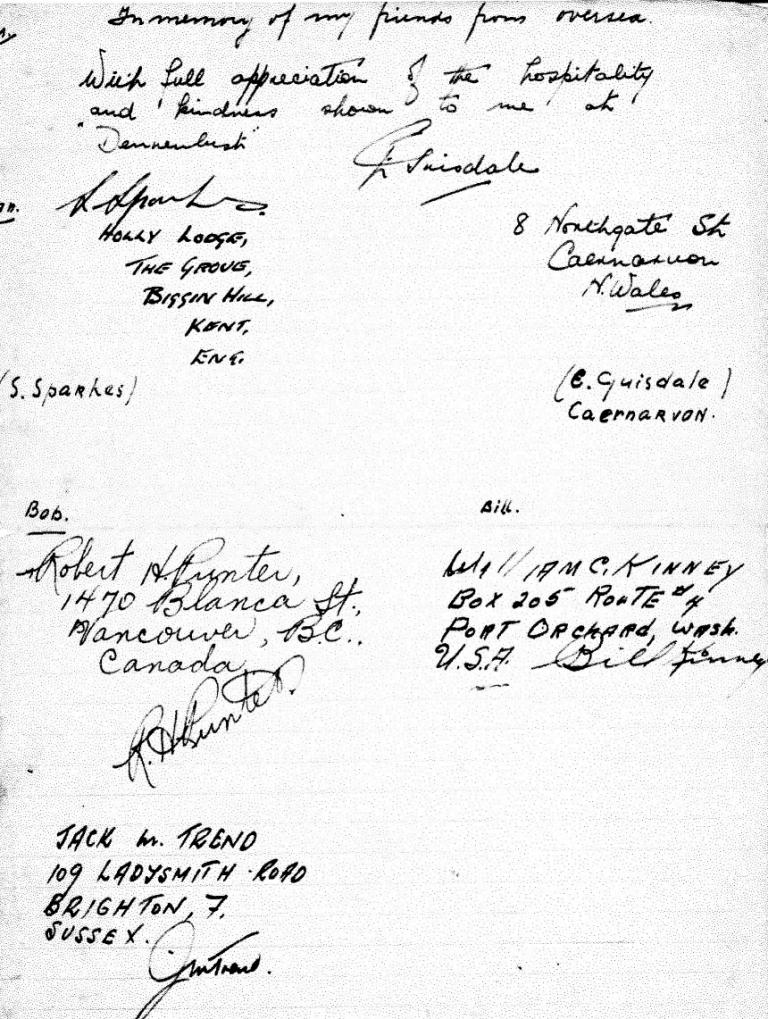 In memory of my friends from oversea.
With full appreciation of the hospitality
and kindness shown to me at
"Dennenlust"
S Sparkes
HOLLY LODGE,
THE GROVE,
BIGGIN HILL,
KENT,
ENG.
(S. Sparkes)
8 Northgate St
Caernarvon
N. Wales
(E. Guisdale)
Caernarvon.
Bob.
Robert H. Punter,
1470 Blanca St.,
Vancouver, B.C.,
Canada
R. H. Punter
Bill.
WILLIAM C. KINNEY
BOX 205 ROUTE #4
PORT ORCHARD, WASH.
U.S.A. Bill Kinney
JACK W. TREND
109 LADYSMITH ROAD
BRIGHTON, 7.
SUSSEX.
JWTrend.